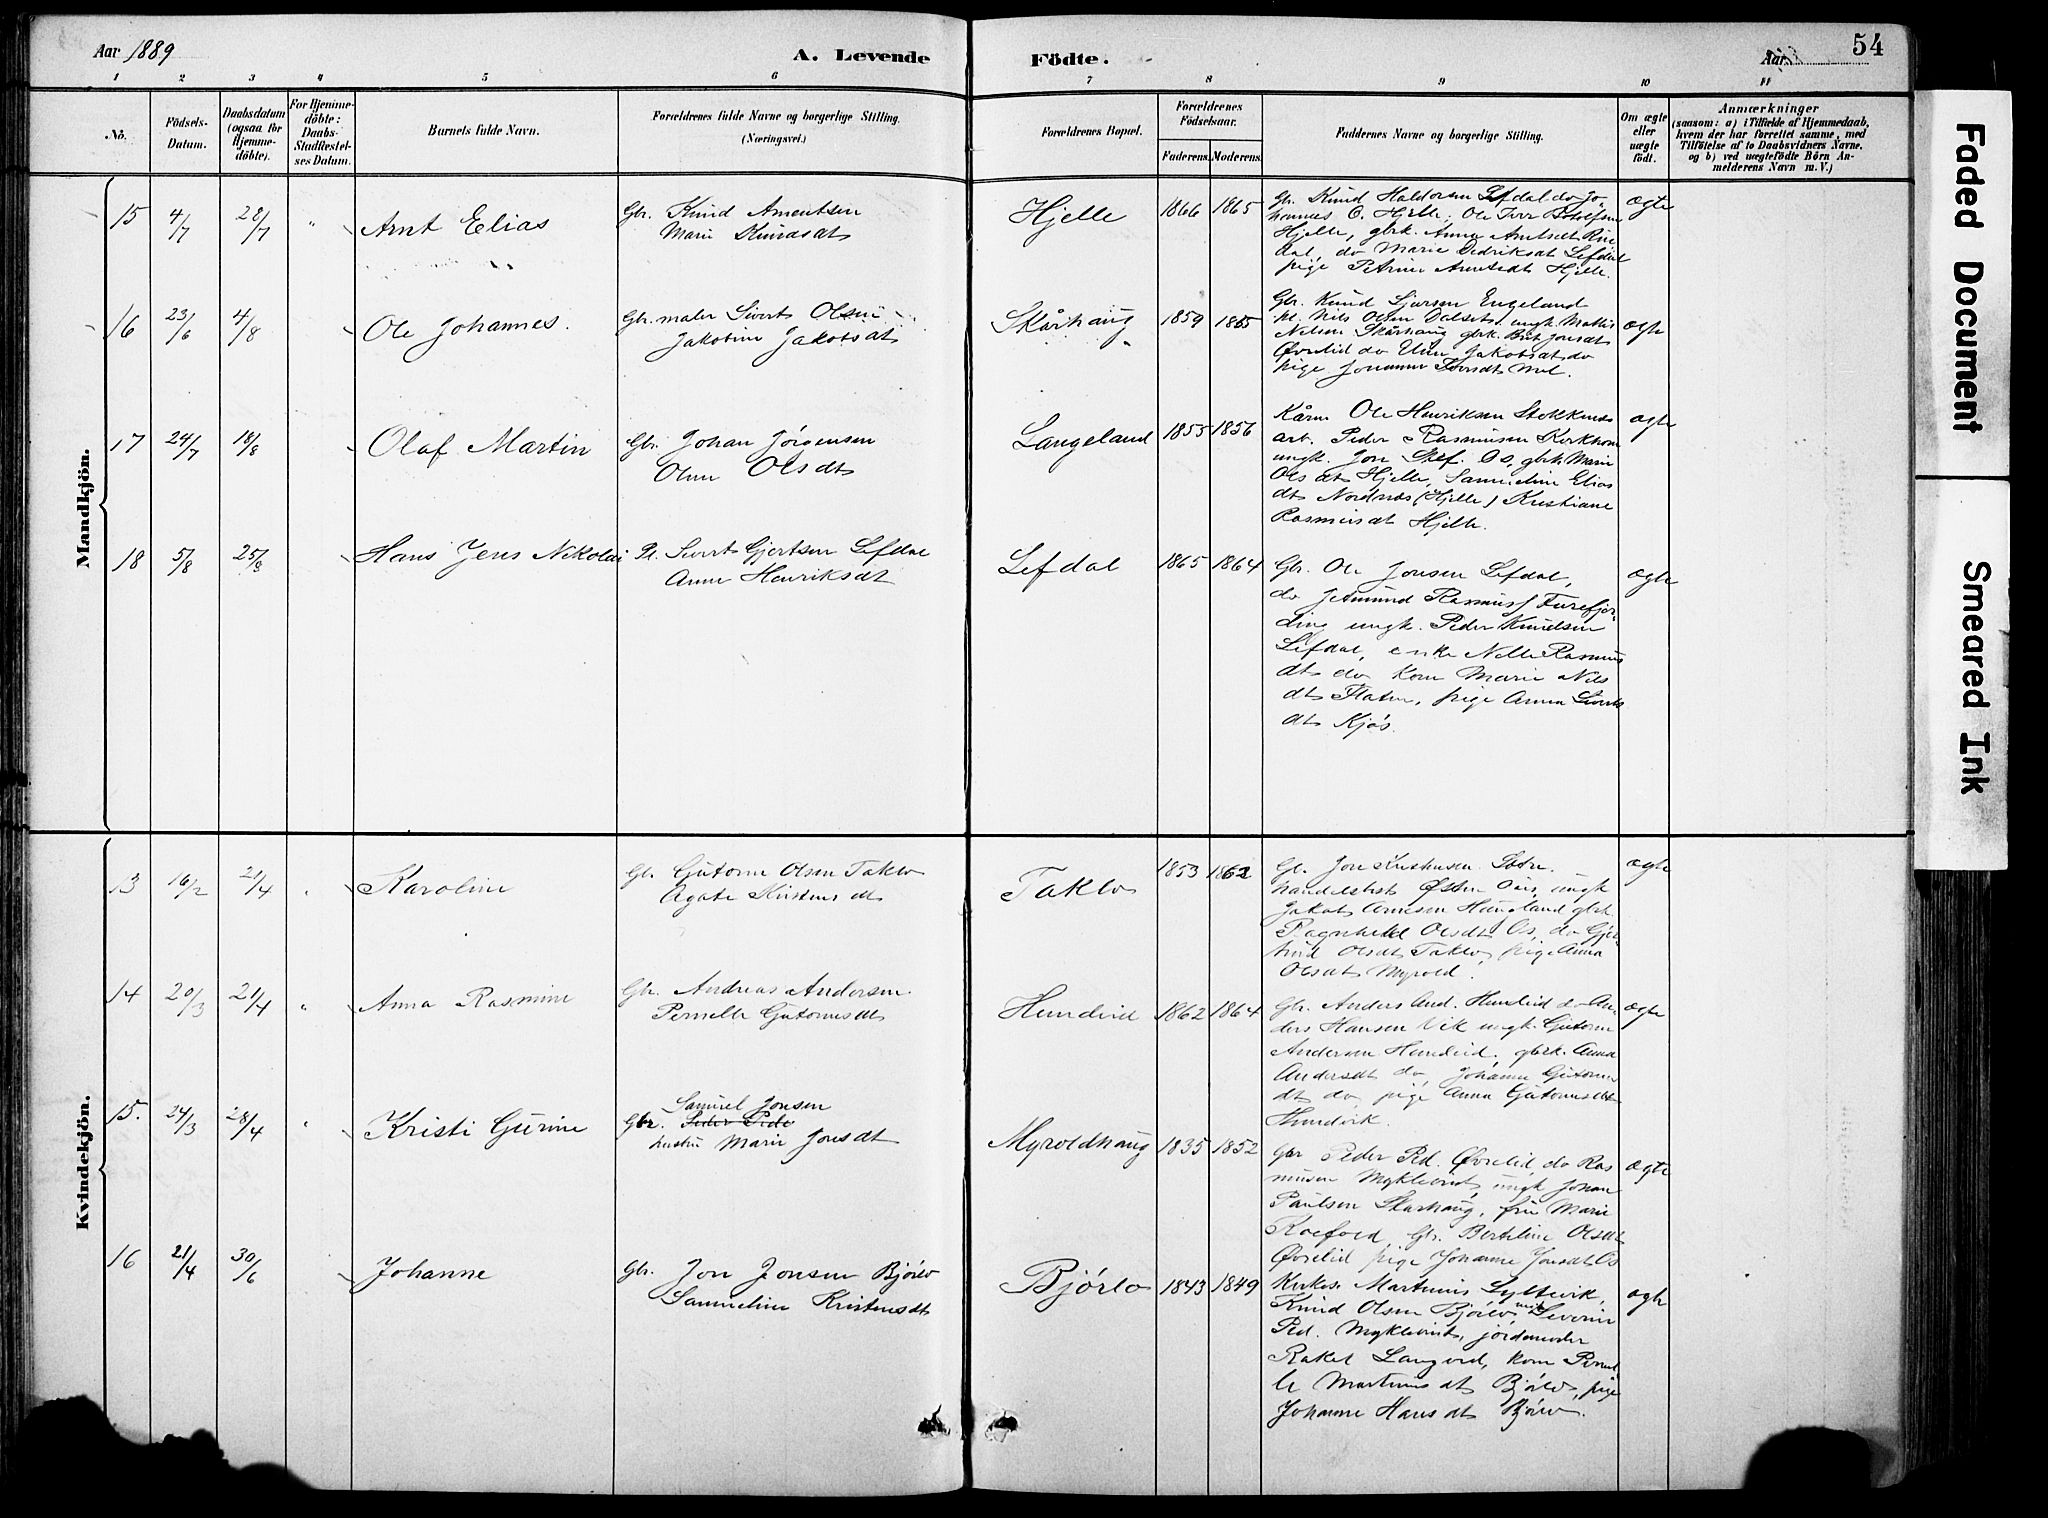 Aar 1889
A. Levende
Födte.
Aar
54
1 2 3 4 5 6 7 8 9 10 11
No.
Födsels-
Datum.
Daabsdatum
(ogsaa for
Hjemme-
döbte).
For Hjemme-
döbte:
Daabs-
Stadfæstel-
ses Datum.
Barnets fulde Navn.
Forældrenes fulde Navne og borgerlige Stilling.
(Næringsvei.)
Forældrenes Bopæl.
Forældrenes
Födselsaar.
Faderens. Moderens.
Faddernes Navne og borgerlige Stilling.
Om ægte
eller
uægte
födt.
Anmærkninger
(saasom: a) i Tilfælde af Hjemmedaab,
hvem der har forrettet samme, med
Tilföielse af to Daabsvidners Navne.
og b) ved uægtefödte Börn An-
melderens Navn m. V.)
Mandkjön.
15 4/7 28/7 " Arnt Elias
Gbr. Knud Arnentsen
Marie Knudsdt
Hjelle 1866 1865
Gbr. Knud Haldorsen Lefdal do Jo-
hannes O. Hjelle, Ole
Hjelle, gbrk. Anna
dal, do Marie Dedriksdt Lefdal
pige Petrine Hjelle.
ægte
16 23/6 4/8 Ole Johannes.
Gbr. maler Sivert Olsen
Jakobine Jakobsdt
Skårhaug 1859 1865
Gbr. Knud Sjursen Engeland
pl. Nils Olsen Dalset, ungk. Mathis
Nelsen Skårhaug gbrk. Brit Jonsdt
Øvrelid do Jakobsdt do
pige Johanne Mel.
ægte
17 24/7 18/8 Olaf Martin
Gbr. Johan Jørgensen
Oline Olsdt
Langeland 1855 1856
Kårm Ole Henriksen Stokknes
arb. Peder Rasmusen Kirkhorn
ungk. Jon Stef. Os, gbrk. Marie
Olsdt Hjelle, Samueline Elias
dt Nordnes (Hjelle) Kristiane
Rasmusdt Hjelle.
ægte
18 5/8 25/8 Hans Jens Nikolai
Pl. Sivert Gjertsen Lefdal
Anne Henriksdt
Lefdal 1865 1864
Gbr. Ole Jonsen Lefdal,
do Jetmund Rasmus Furefjor-
ding ungk. Peder Knudsen
Lefdal, enke Nelle Rasmus
dt do kone Marie Nils
dt Flaten, pige Anna Siverts
dt Kjøs.
ægte
Kvindekjön.
13 16/2 21/4 " Karoline
Gbr. Gutorm Olsen Taklo
Agate Kristensdt
Taklo 1853 1862
Gbr. Jon
handelsbst. Østen Os, ungk
Jakob Arnesen Haugland gbrk.
Ragnhild Olsdt Os, do Gjer-
trud Olsdt Taklo, pige Anna
Olsdt Myrold.
ægte
14 20/3 21/4 " Anna Rasmine
Gbr. Andreas Andersen
Pernelle Gutormsdt
Hundeid 1862 1864
Gbr. Anders And. Hundeid do An-
ders Hansen Vik ungk. Gutorm
Andersen Hundeid, gbrk. Anna
Andersdt do Johanne Gutorms
dt do pige Anna Gutormsdt
Hundvik.
ægte
15. 24/3 28/4 " Kristi Gurine
Samuel Jonsen
Gbr. Peder Pede
hustru Marie Jonsdt
Myroldhaug 1835 1852
Gbr Peder Ped. Øvrelid, do Ras
musen Myklebust, ungk Johan
Paulsen Skarhaug, fru Marie
Koefoed, Gbr. Berteline Olsdt
Øvrelid pige Johanne Jonsdt Os
ægte
16 21/4 30/6 Johanne
Gbr. Jon Jonsen Bjørlo
Samueline Kristensdt
Bjørlo 1843 1849
Kirkes. Martinus Lyltevik,
Knud Olsen Bjørlo, Severin
Ped. Myklebust, jordmoder
Rakel Langved, kone Pernel
le Martinusdt Bjørlo, pige
Johanne Hansdt Bjørlo.
ægte
Faded Document
Smeared Ink